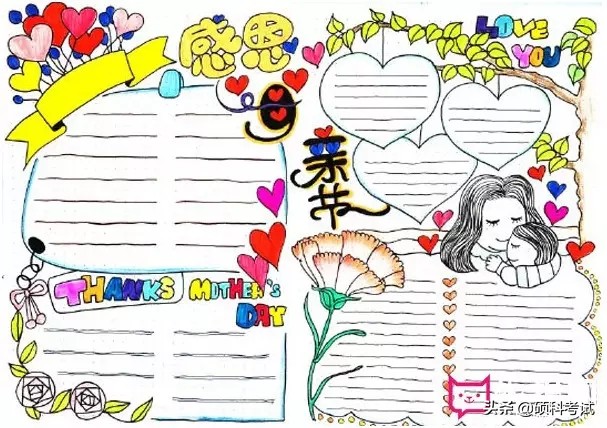 感恩
母
亲
节
LOVE
YOU
THANKS MOTHER'S
DAY
头条 @硕科考试